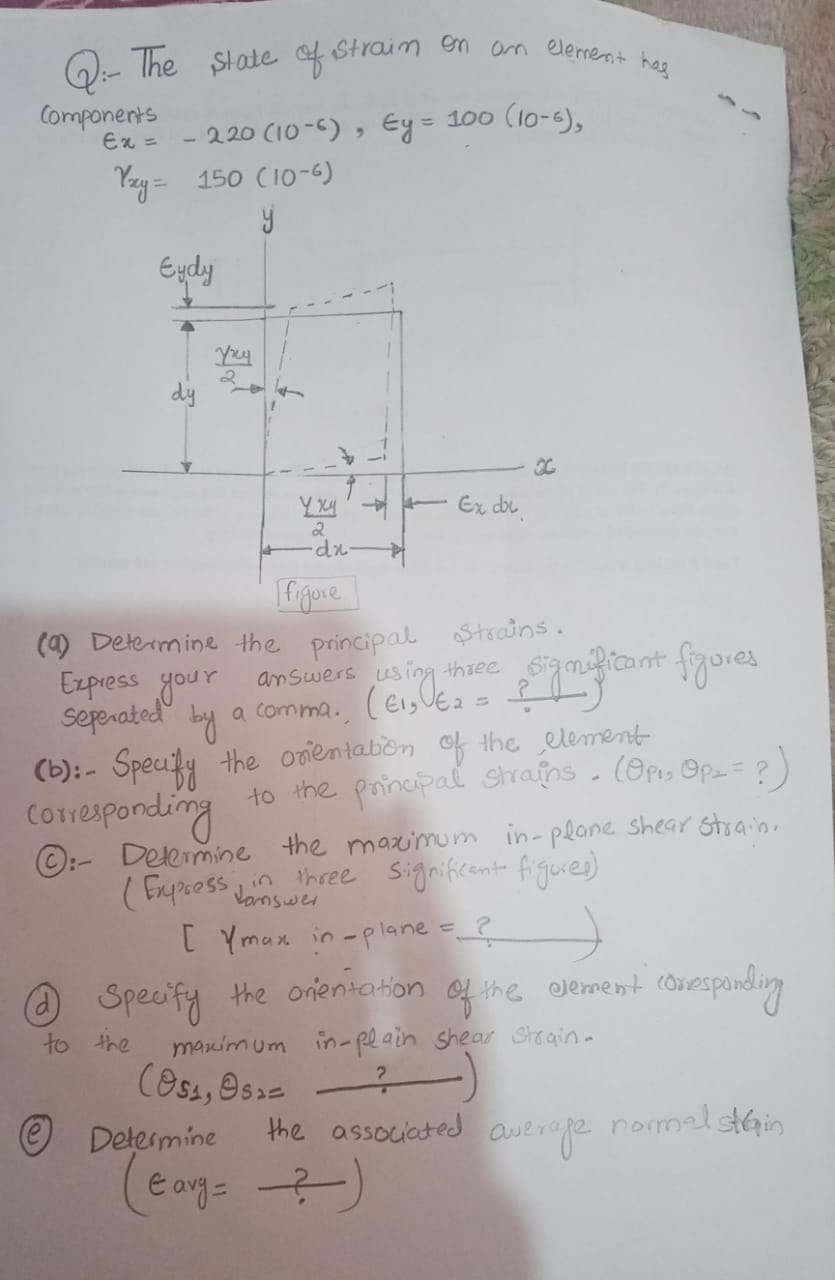 Q:- The state of strain on an element has
Components
εx = - 220 (10-6) , εy = 100 (10-6),
γxy = 150 (10-6)
y
εydy
γxy
2
dy
x
γxy
2
εx dx
dx
figure
(a) Determine the principal strains.
Express your answers using three significant figures
seperated by a comma. (ε1, ε2 = ?)
(b):- Specify the orientation of the element
corresponding to the principal strains. (θp1, θp2 = ?)
(c):- Determine the maximum in-plane shear strain.
(Express answer in three significant figures)
[ γmax in-plane = ? )
(d) Specify the orientation of the element corresponding
to the maximum in-plain shear strain.
(θs1, θs2 = ?)
(e) Determine the associated average normal strain
(εavg = ?)